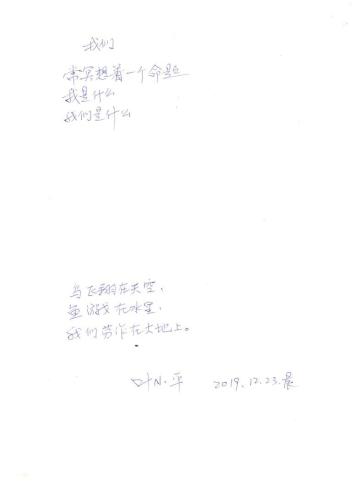 我们
常冥想着一个命题
我是什么
我们是什么
鸟飞翔在天空，
鱼游戏在水里，
我们劳作在大地上。
叶N·平 2019.12.23.晨